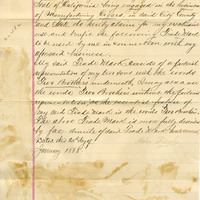 State of California being engaged in the business
of Manufacturing Cigars, in said City County
and State do hereby claim for my protection
and benefit the following Trade Mark
to be used by me in connection with my
aforesaid business.
My said Trade Mark consists of a pictorial
representation of my two sons with the words
Two Brothers underneath, I may also use
the words Two Brothers without the pictorial
representation as the essential feature of
my said Trade Mark is the words Two Brothers
The above Trade Mark is more fully shown
by fac simile of said Trade Mark
Dated this day of
January 1888